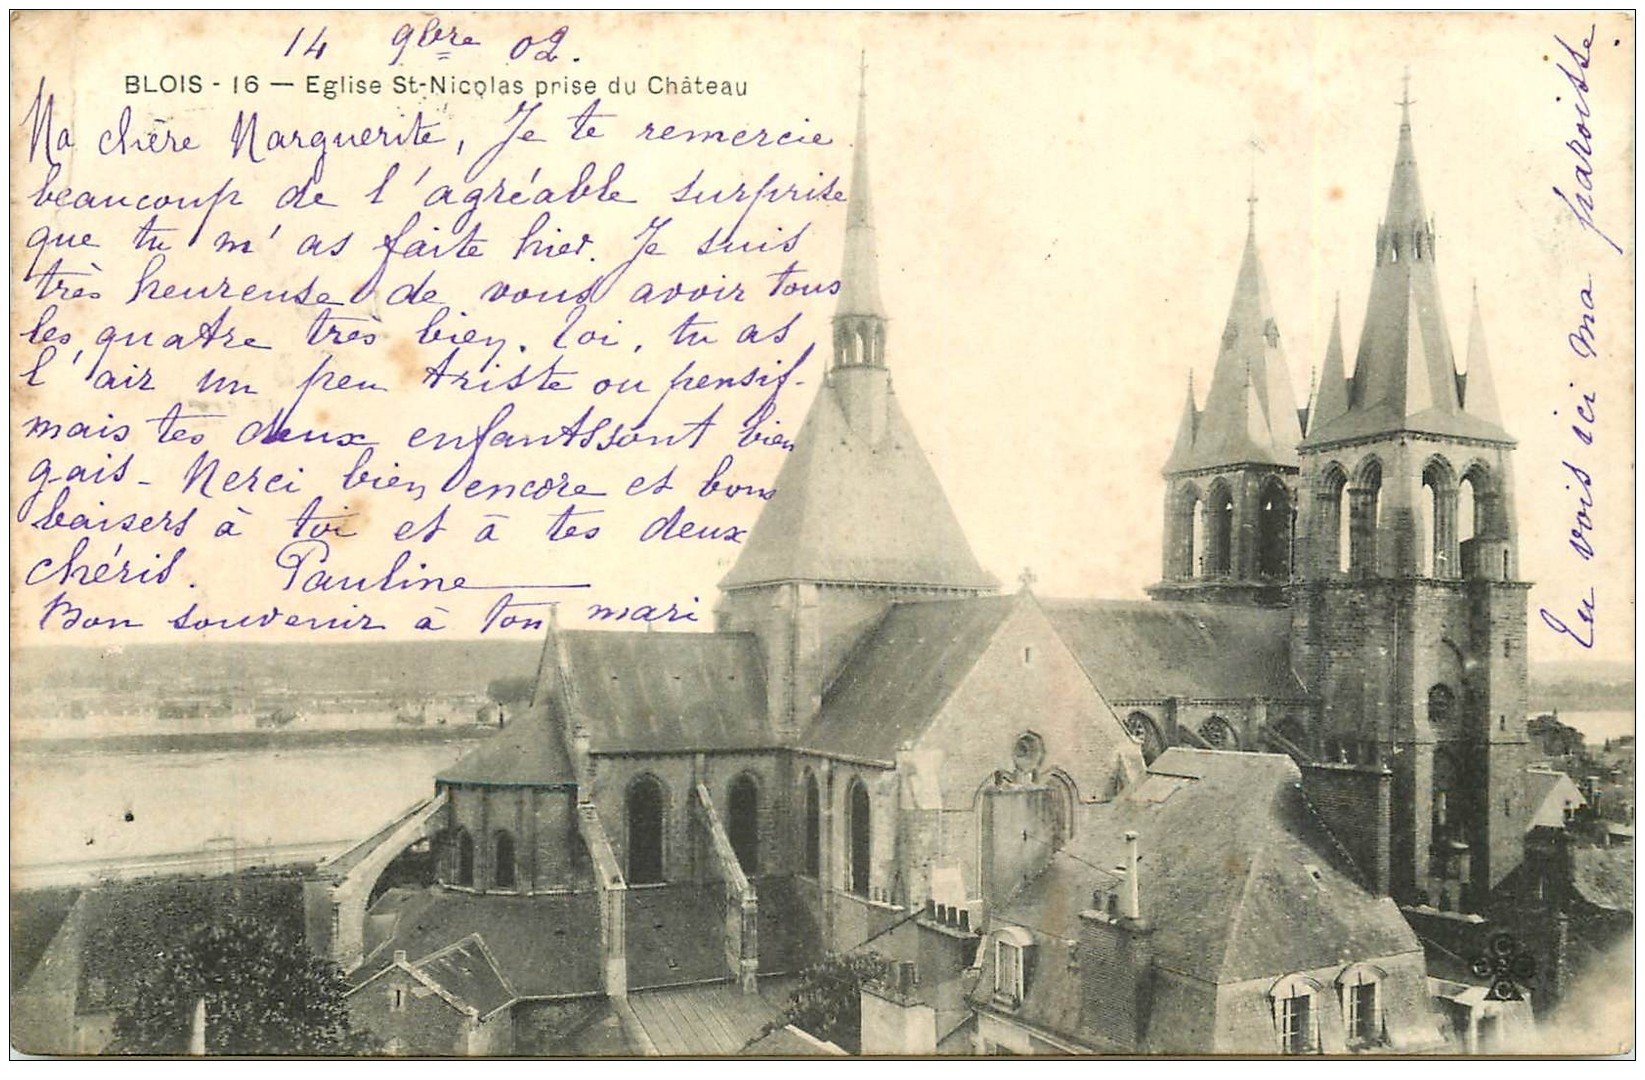 14 9bre 02.
BLOIS - 16 — Eglise St-Nicolas prise du Château
Ma chère Marguerite, Je te remercie
beaucoup de l'agréable surprise
que tu m'as faite hier. Je suis
très heureuse de vous avoir tous
les quatre très bien. Toi, tu as
l'air un peu triste ou pensif-
mais tes deux enfants sont bien
gais - Merci bien encore et bons
baisers à toi et à tes deux
chéris. Pauline
Bon souvenir à ton mari
Tu vois ici ma paroisse.